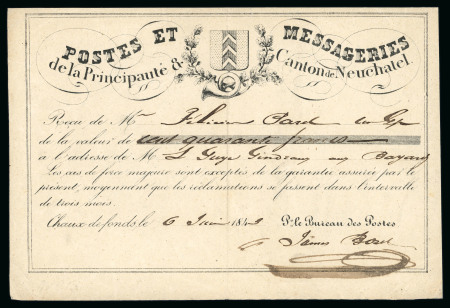 POSTES ET MESSAGERIES
de la Principauté & Canton de Neuchatel
Reçu de Mr. Félicien
de la valeur de cent quarante francs
à l'adresse de M. aux Bayards
Les cas de force majeure sont exceptés de la garantie assurée par le
présent, moyennant que les réclamations se fassent dans l'intervalle
de trois mois.
Chaux de fonds, le 6 Juin 184
Pr. le Bureau des Postes
James